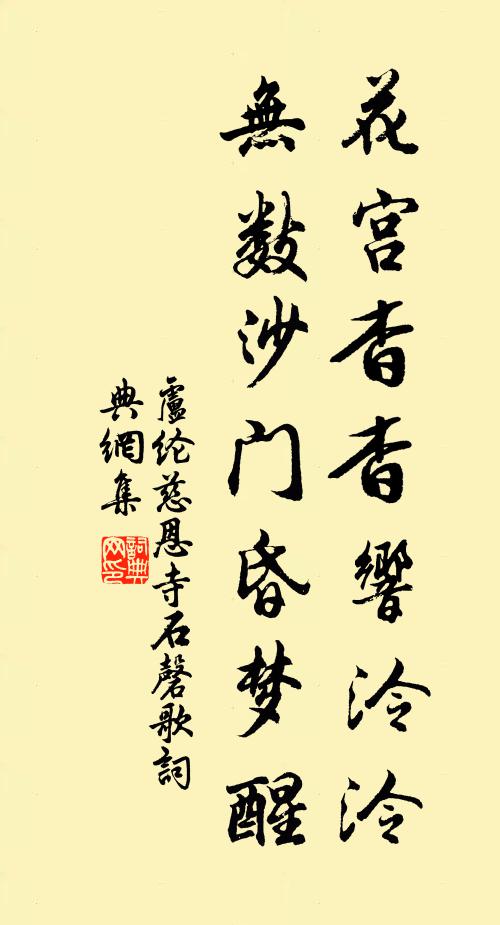 花宫杳杳響泠泠
無数沙门昏梦醒
盧纶慈恩寺石磬歌詞
典網集
詞典
网印